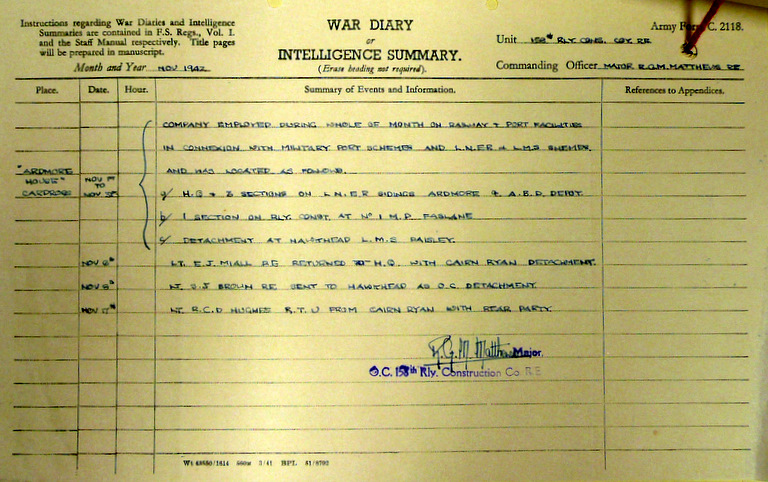 Instructions regarding War Diaries and Intelligence
Summaries are contained in F.S. Regs., Vol. I.
and the Staff Manual respectively. Title pages
will be prepared in manuscript.
Month and Year NOV 1942
WAR DIARY
or
INTELLIGENCE SUMMARY.
(Erase heading not required).
Army Form C. 2118.
Unit 158th RLY. CONS. COY. RE
Commanding Officer MAJOR R.G.M. MATTHEWS RE
Place. Date. Hour. Summary of Events and Information. References to Appendices.
COMPANY EMPLOYED DURING WHOLE OF MONTH ON RAILWAY & PORT FACILITIES
IN CONNEXION WITH MILITARY PORT SCHEMES AND L.N.E.R & L.M.S SHEMES.
"ARDMORE HOUSE" CARDROSS NOV 1st TO NOV AND WAS LOCATED AS FOLLOWS.
a/ H.Q & 2 SECTIONS ON L.N.E.R SIDINGS ARDMORE & A.B.D. DEPOT.
b/ 1 SECTION ON RLY. CONST. AT No 1 M.P. FASLANE
c/ DETACHMENT AT HAWKHEAD L.M.S PAISLEY.
NOV 6th LT. E.J. MIALL RE RETURNED TO H.Q. WITH CAIRN RYAN DETACHMENT.
NOV 8th LT. J BROWN RE SENT TO HAWKHEAD AS O.C. DETACHMENT.
NOV 17th LT. R.C.D HUGHES R.T.U FROM CAIRN RYAN WITH REAR PARTY.
R.G.M Matthews Major.
O.C. 158th Rly. Construction Co. R.E